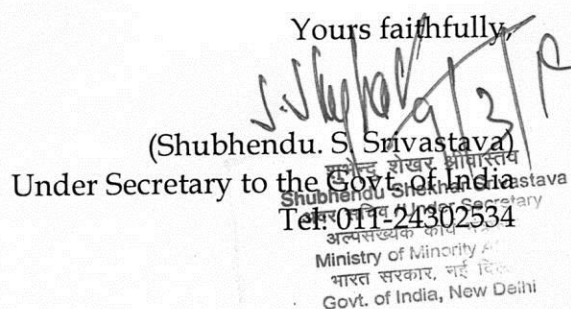 Yours faithfully,
(Shubhendu. S. Srivastava)
Under Secretary to the Govt. of India
Tel: 011-24302534
शुभेन्दु शेखर श्रीवास्तव
Shubhendu Shekhar Srivastava
अवर सचिव / Under Secretary
अल्पसंख्यक कार्य
Ministry of Minority
भारत सरकार, नई
Govt. of India, New Delhi